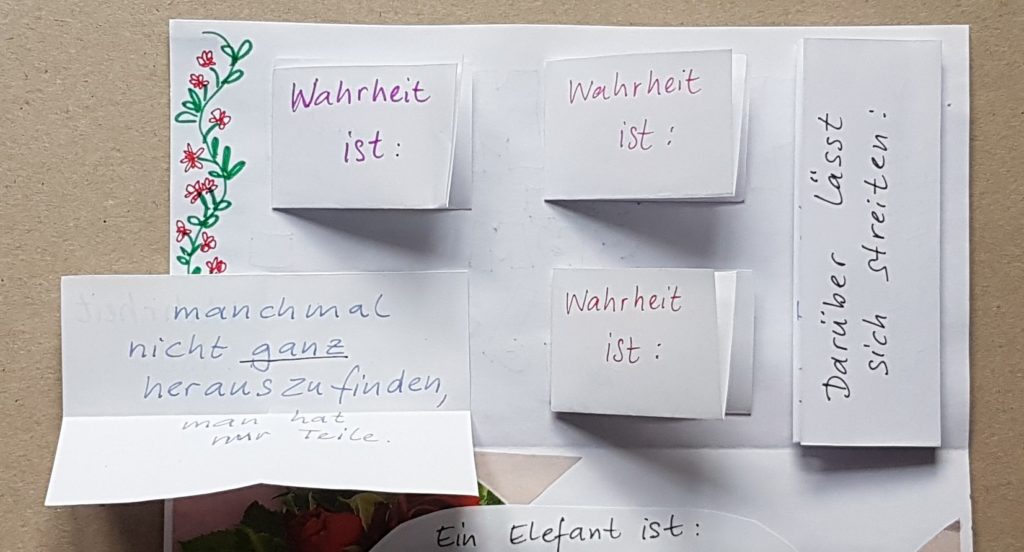 Wahrheit
ist:
Wahrheit
ist:
manchmal
nicht ganz
herauszufinden,
man hat
nur Teile.
Wahrheit
ist:
Darüber lässt
sich streiten:
Ein Elefant ist: